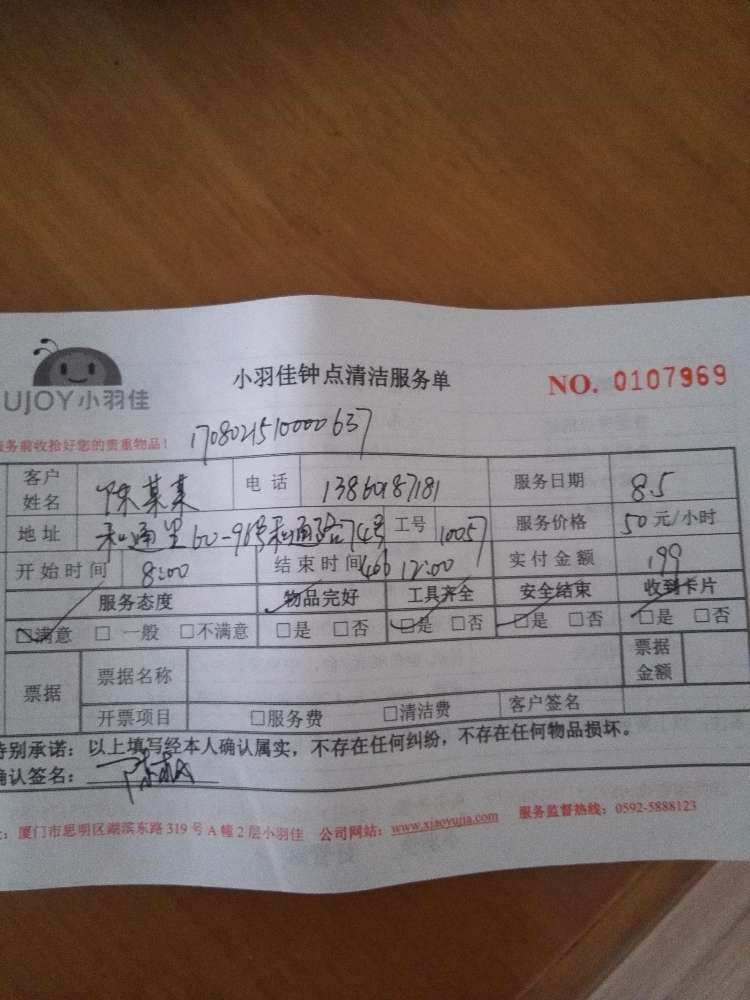 UJOY小羽佳
小羽佳钟点清洁服务单
NO. 0107969
服务前收拾好您的贵重物品！
1708021510000637
客户姓名 陈某某 电话 13860187181 服务日期 8.5
地址 和通里60-98号和通路74号 工号 10057 服务价格 50元/小时
466
开始时间 8:00 结束时间 12:00 实付金额 199
服务态度 物品完好 工具齐全 安全结束 收到卡片
□满意 □一般 □不满意 □是 □否 □是 □否 □是 □否 □是 □否
票据 票据名称 票据金额
开票项目 □服务费 □清洁费 客户签名
特别承诺：以上填写经本人确认属实，不存在任何纠纷，不存在任何物品损坏。
确认签名：
厦门市思明区湖滨东路319号A幢2层小羽佳 公司网站：www.xiaoyujia.com 服务监督热线：0592-5888123